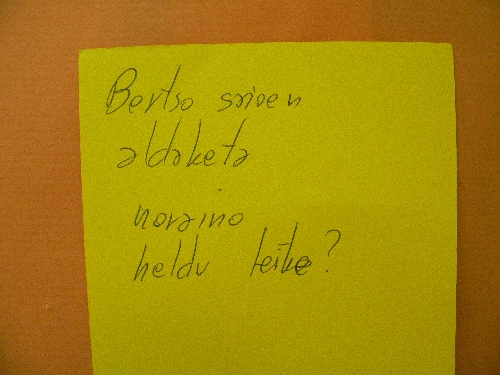 Bertso saioen
aldaketa
noraino
heldu leike?